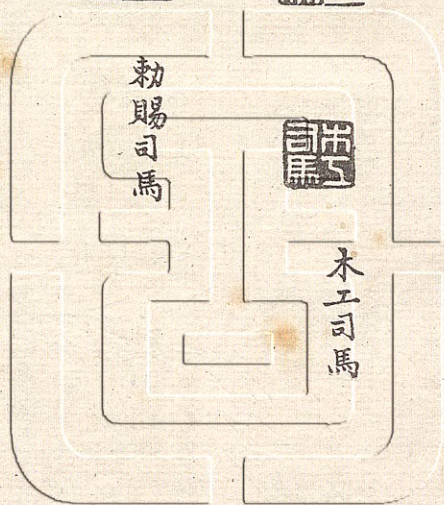 木工
司馬
木工司馬
勅賜司馬